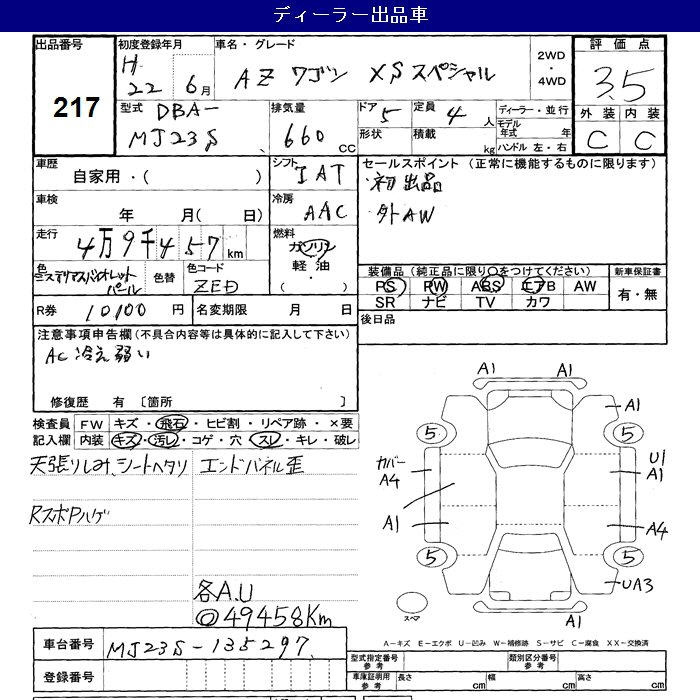 ディーラー出品車
出品番号 初度登録年月 車名・グレード 2WD・4WD 評価点
217
H 22 6月 AZ ワゴン XSスペシャル 3.5
型式 DBA-MJ23S 排気量 660 cc
ドア 5 定員 4 人 ディーラー・並行 外装 内装
形状 積載 kg モデル年式 年 ハンドル 左・右 C C
車歴 自家用・( ) シフト IAT
セールスポイント (正常に機能するものに限ります)
・初出品
・外AW
車検 年 月( 日) 冷房 AAC
走行 4万9千457 km 燃料 ガソリン 軽油・( )
色 ミステリアスバイオレットパール 色替 色コード ZED
装備品 (純正品に限り○をつけてください) 新車保証書
PS PW ABS エアB AW 有・無
SR ナビ TV カワ
R券 10100 円 名変期限 月 日
後日品
注意事項申告欄(不具合内容等は具体的に記入して下さい)
AC冷え弱い
修復歴 有 〔箇所 〕
検査員記入欄 FW キズ・飛石・ヒビ割・リペア跡・×要
内装 キズ・汚レ・コゲ・穴・スレ・キレ・破レ
天張りしみ、シートヘタリ エンドパネル歪
RスポPハゲ
各A.U
◎49458Km
A1
A1 A1
5 5
カバー A4 U1 A1
A1 A4
5 5
UA3
スペア A1
A-キズ E-エクボ U-凹み W-補修跡 S-サビ C-腐食 XX-交換済
車台番号 MJ23S-135297
型式指定番号 参考 類別区分番号 参考
登録番号 車庫証明用 参考 長さ cm 幅 cm 高さ cm